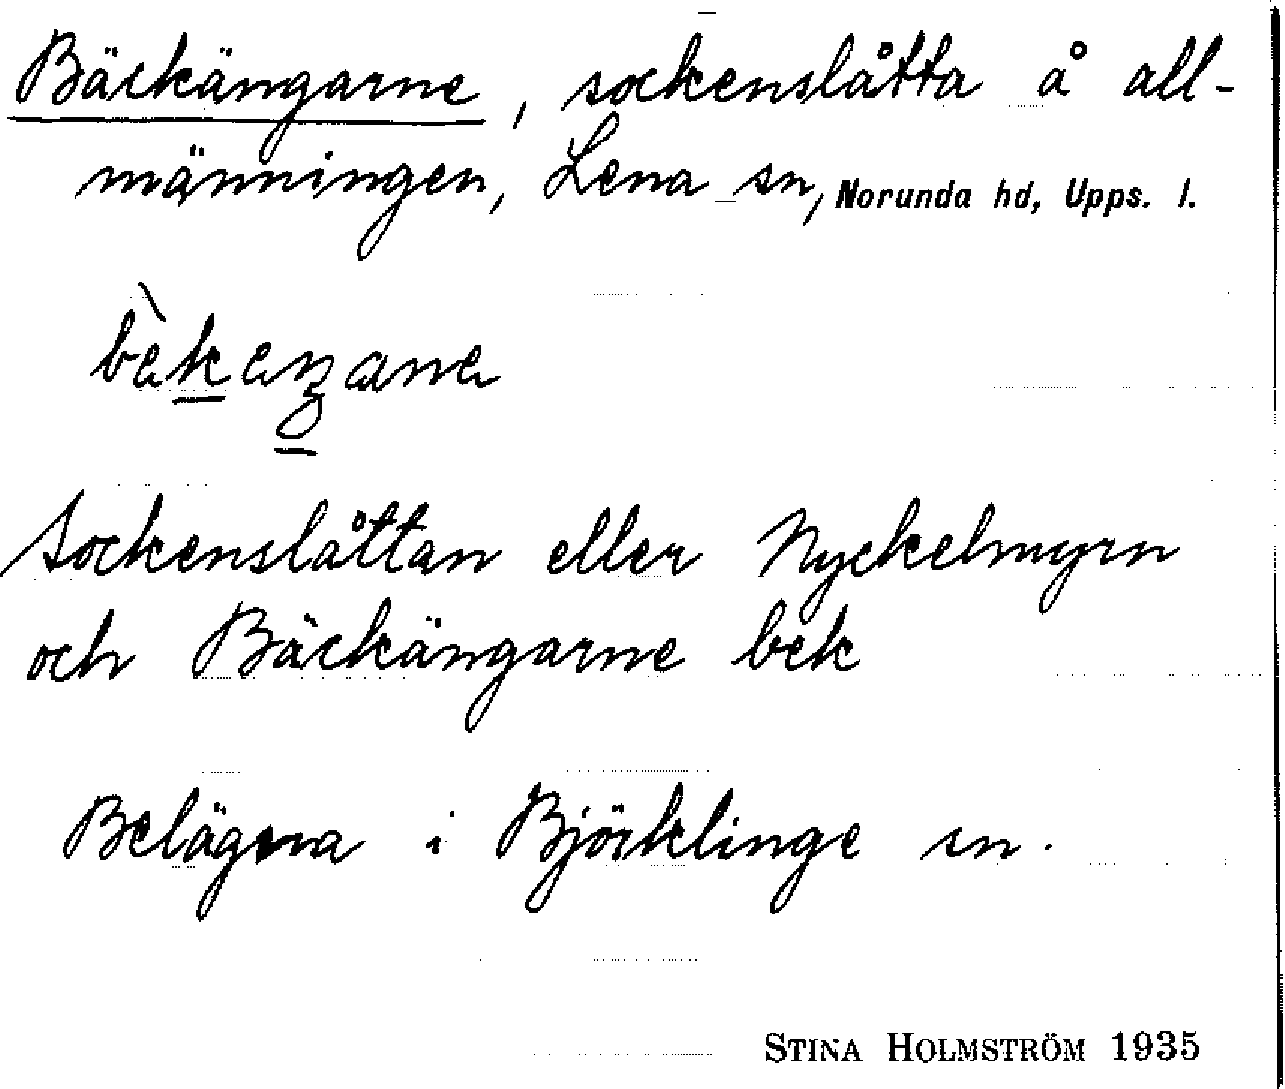 Bäckängarne, sockenslåtta å all-
männingen, Lena sn, Norunda hd, Upps. l.
Sockenslåttan eller Nyckelmyrn
och Bäckängarne bek
Belägna i Björklinge sn.
STINA HOLMSTRÖM 1935